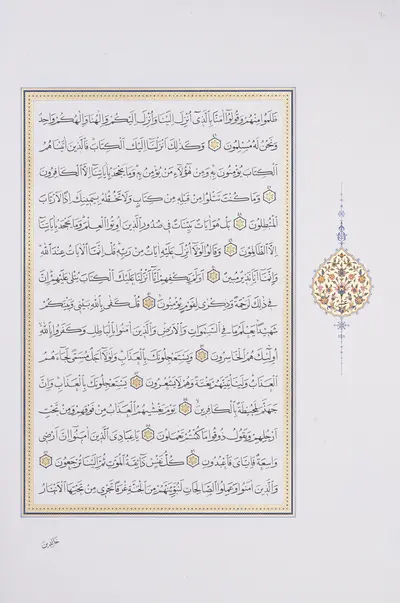 ظَلَمُوا مِنْهُمْ وَقُولُوا آمَنَّا بِالَّذِي أُنْزِلَ إِلَيْنَا وَأُنْزِلَ إِلَيْكُمْ وَإِلٰهُنَا وَإِلٰهُكُمْ وَاحِدٌ
وَنَحْنُ لَهُ مُسْلِمُونَ وَكَذٰلِكَ أَنْزَلْنَا إِلَيْكَ الْكِتَابَ فَالَّذِينَ آتَيْنَاهُمُ
الْكِتَابَ يُؤْمِنُونَ بِهِ وَمِنْ هٰؤُلَاءِ مَنْ يُؤْمِنُ بِهِ وَمَا يَجْحَدُ بِآيَاتِنَا إِلَّا الْكَافِرُونَ
وَمَا كُنْتَ تَتْلُوا مِنْ قَبْلِهِ مِنْ كِتَابٍ وَلَا تَخُطُّهُ بِيَمِينِكَ إِذًا لَارْتَابَ
الْمُبْطِلُونَ بَلْ هُوَ آيَاتٌ بَيِّنَاتٌ فِي صُدُورِ الَّذِينَ أُوتُوا الْعِلْمَ وَمَا يَجْحَدُ بِآيَاتِنَا
إِلَّا الظَّالِمُونَ وَقَالُوا لَوْلَا أُنْزِلَ عَلَيْهِ آيَاتٌ مِنْ رَبِّهِ قُلْ إِنَّمَا الْآيَاتُ عِنْدَ اللهِ
وَإِنَّمَا أَنَا نَذِيرٌ مُبِينٌ أَوَلَمْ يَكْفِهِمْ أَنَّا أَنْزَلْنَا عَلَيْكَ الْكِتَابَ يُتْلَى عَلَيْهِمْ إِنَّ
فِي ذٰلِكَ لَرَحْمَةً وَذِكْرَى لِقَوْمٍ يُؤْمِنُونَ قُلْ كَفَى بِاللهِ بَيْنِي وَبَيْنَكُمْ
شَهِيدًا يَعْلَمُ مَا فِي السَّمٰوَاتِ وَالْأَرْضِ وَالَّذِينَ آمَنُوا بِالْبَاطِلِ وَكَفَرُوا بِاللهِ
أُولٰئِكَ هُمُ الْخَاسِرُونَ وَيَسْتَعْجِلُونَكَ بِالْعَذَابِ وَلَوْلَا أَجَلٌ مُسَمًّى لَجَاءَهُمُ
الْعَذَابُ وَلَيَأْتِيَنَّهُمْ بَغْتَةً وَهُمْ لَا يَشْعُرُونَ يَسْتَعْجِلُونَكَ بِالْعَذَابِ وَإِنَّ
جَهَنَّمَ لَمُحِيطَةٌ بِالْكَافِرِينَ يَوْمَ يَغْشٰيهُمُ الْعَذَابُ مِنْ فَوْقِهِمْ وَمِنْ تَحْتِ
أَرْجُلِهِمْ وَيَقُولُ ذُوقُوا مَا كُنْتُمْ تَعْمَلُونَ يَا عِبَادِيَ الَّذِينَ آمَنُوا إِنَّ أَرْضِي
وَاسِعَةٌ فَإِيَّايَ فَاعْبُدُونِ كُلُّ نَفْسٍ ذَائِقَةُ الْمَوْتِ ثُمَّ إِلَيْنَا تُرْجَعُونَ
وَالَّذِينَ آمَنُوا وَعَمِلُوا الصَّالِحَاتِ لَنُبَوِّئَنَّهُمْ مِنَ الْجَنَّةِ غُرَفًا تَجْرِي مِنْ تَحْتِهَا الْأَنْهَارُ
خَالِدِينَ